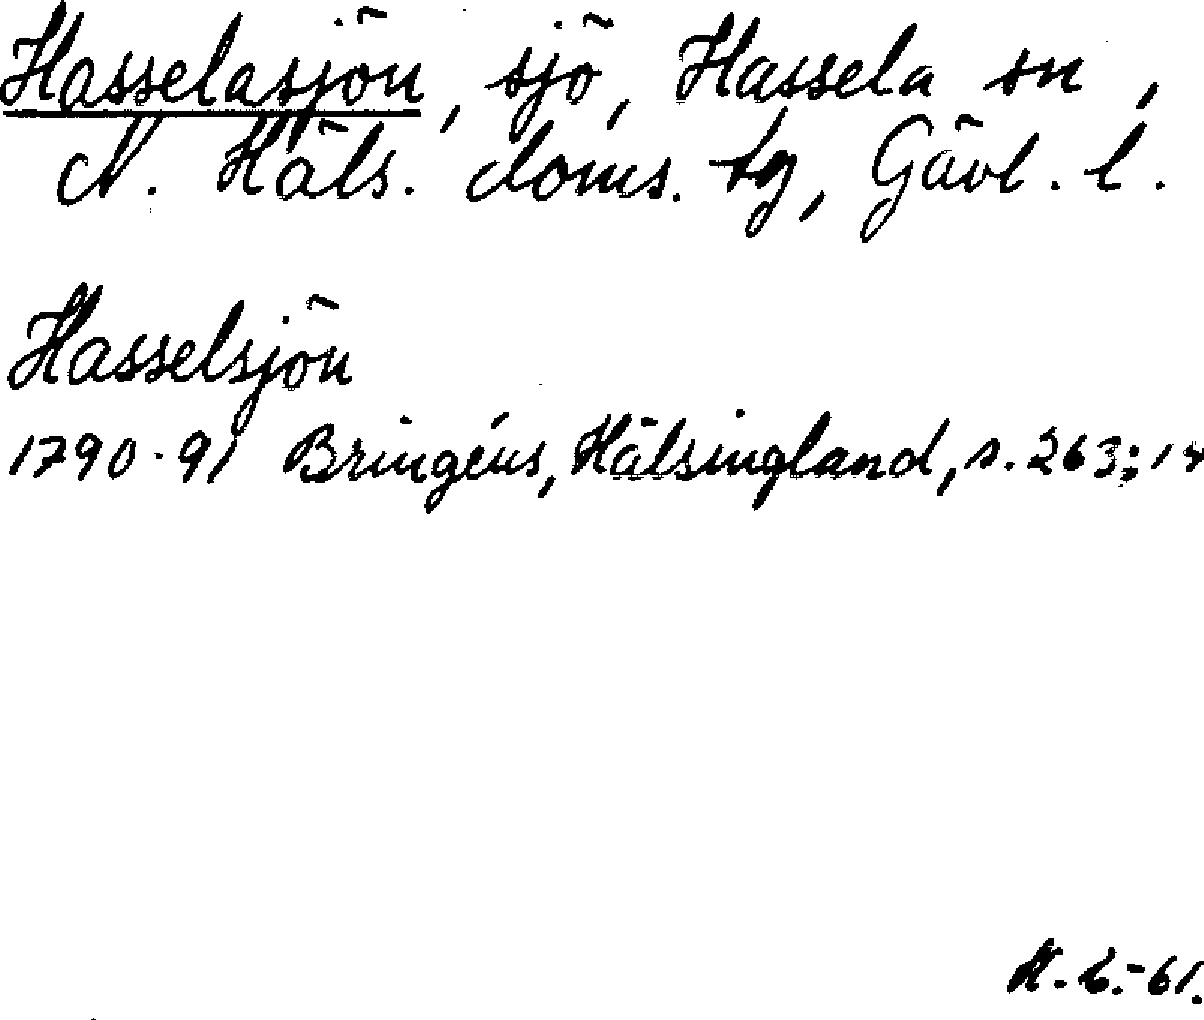 Hasselasjön, sjö, Hassela sn,
N. Häls. doms. tg, Gävl. l.
Hasselsjön
1790-91 Bringéus, Hälsingland, s. 263;
-61.